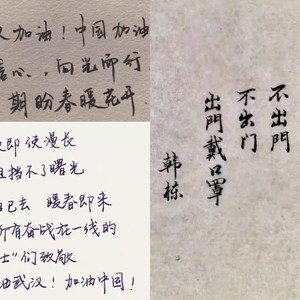 加油！中国加油
心,向光而行
期盼春暖花开.
即使漫长
挡不了曙光
已去 暖春即来
所有奋战在一线的
士"们致敬
油武汉！加油中国！
不出门
不出门
出門戴口罩
韩栋